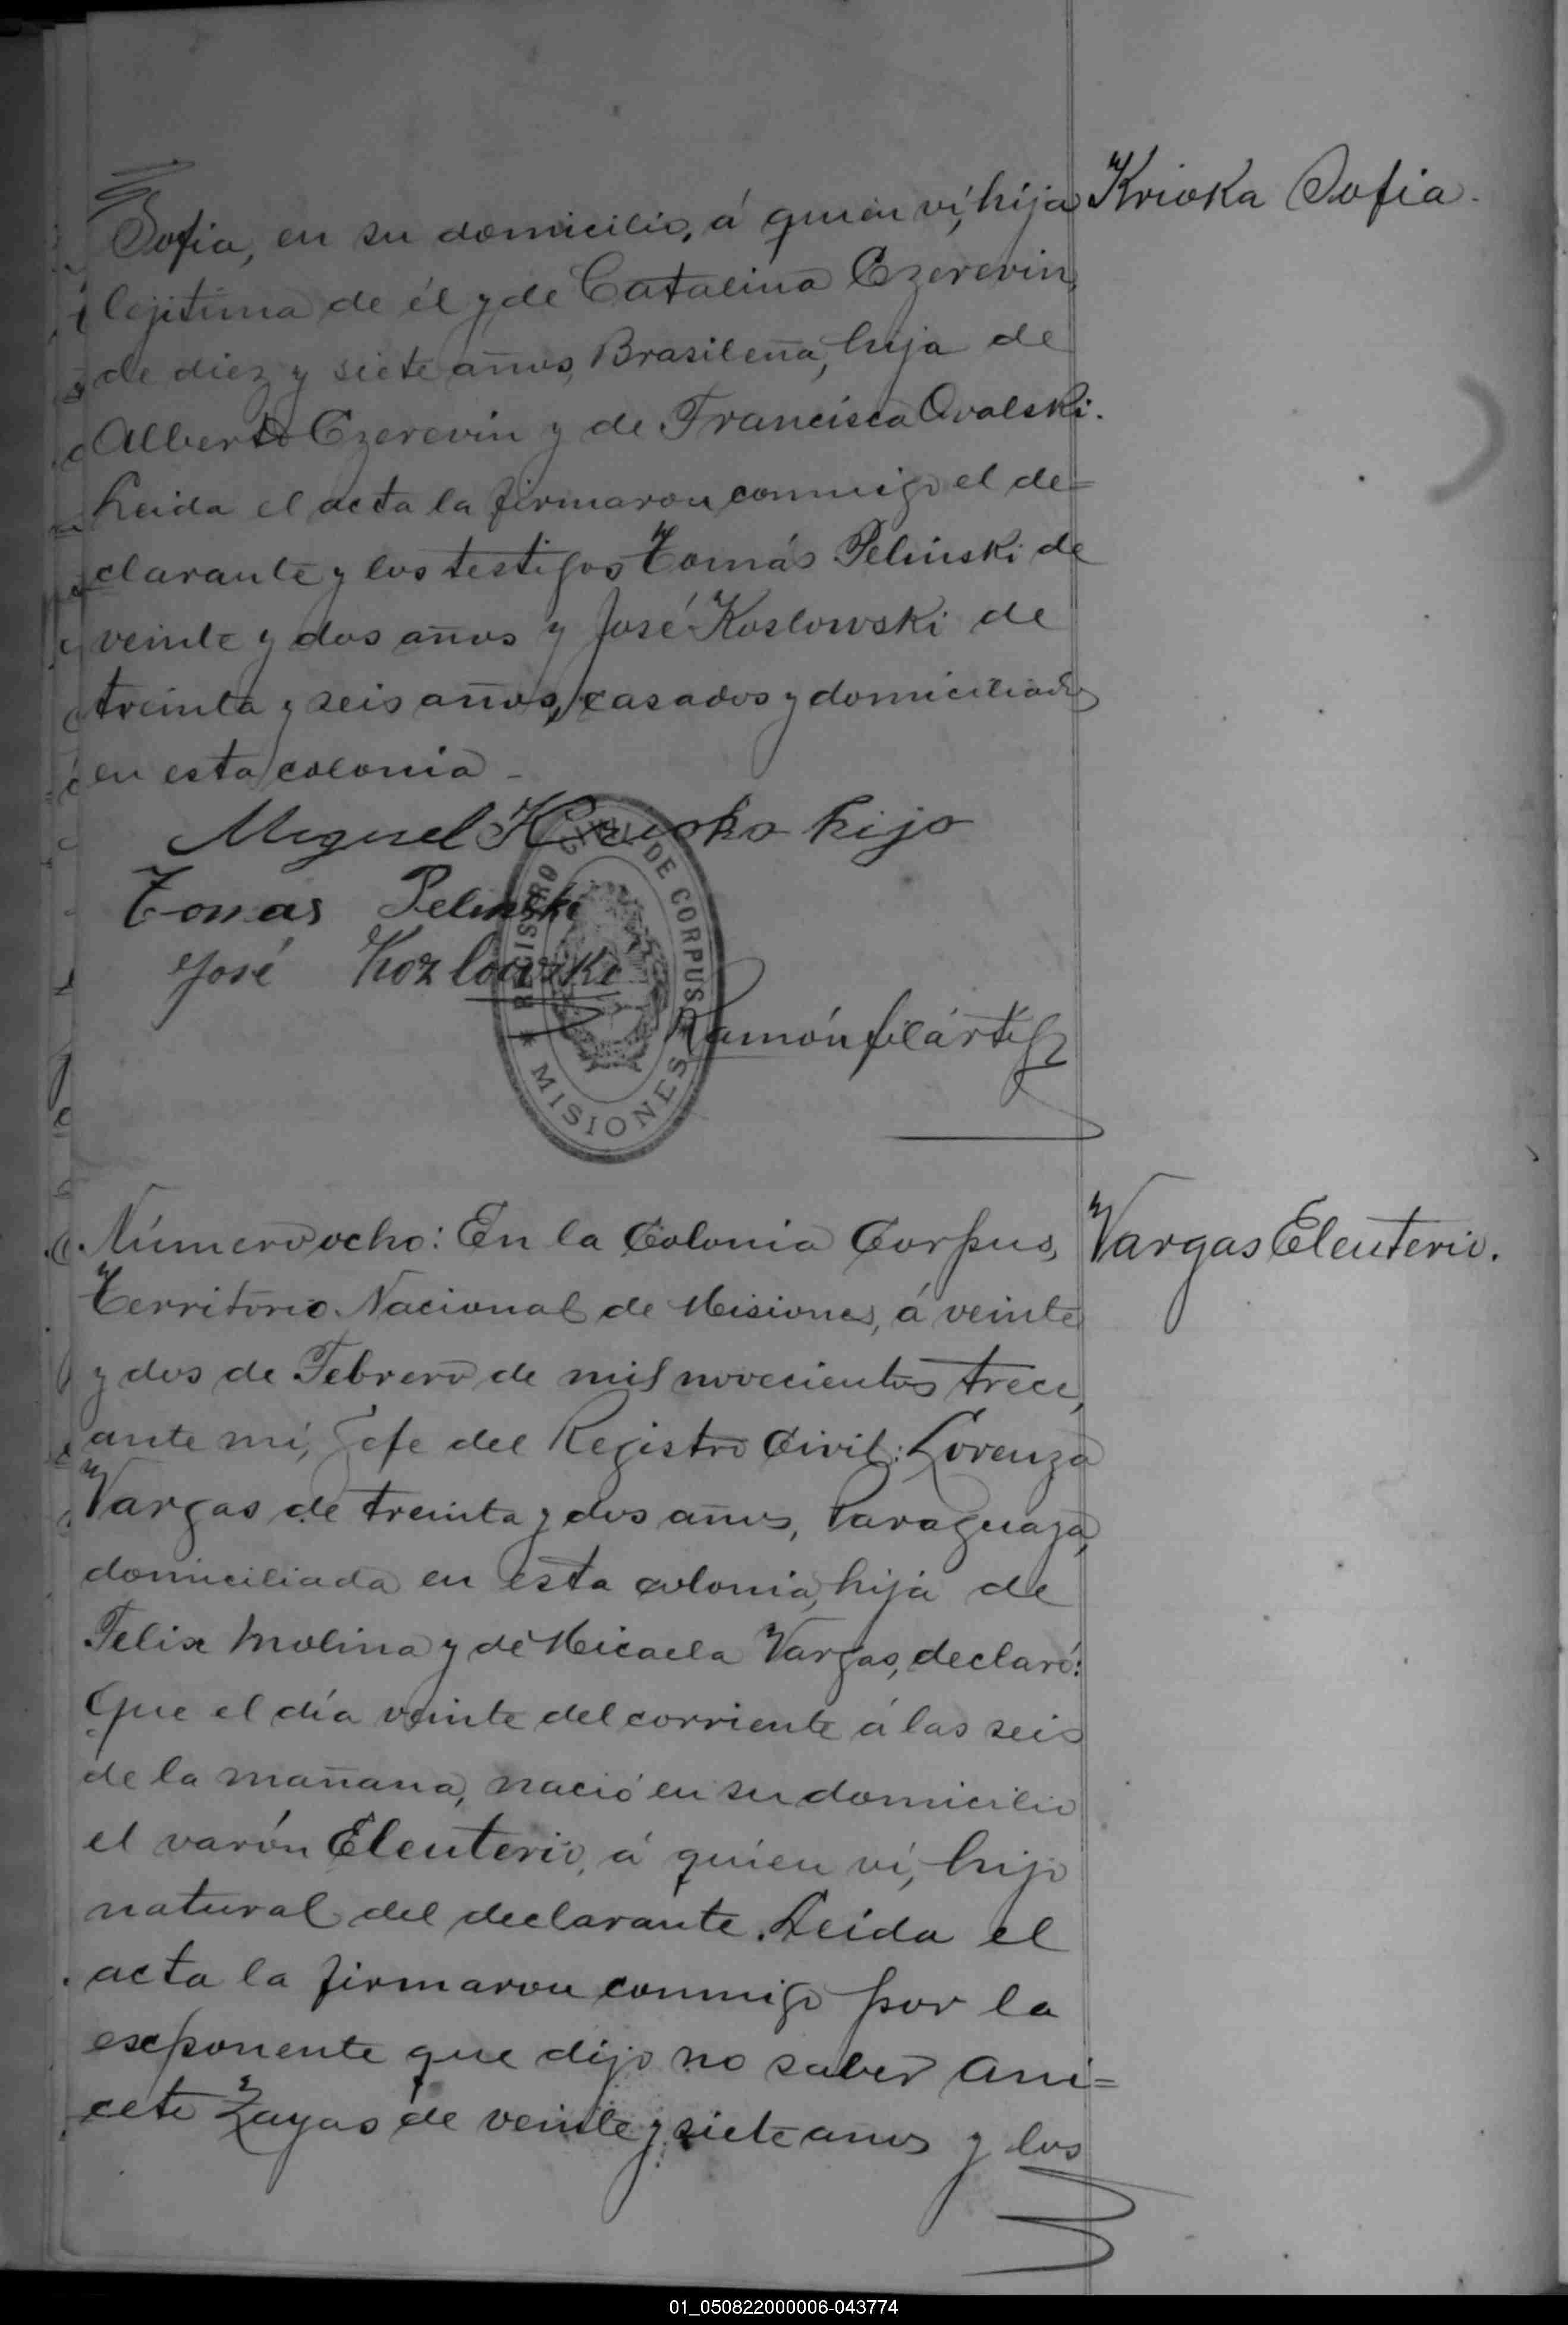 Krioka Sofia.
Sofia, en su domicilio, á quien ví, hija
lejitima de él y de Catalina Czerevin,
de diez y siete años, Brasileña, hija de
Alberto Czerevin y de Francisca Ovalski.
Leida el acta la firmaron conmigo el de=
clarante y los testigos Tomás Pelinski de
veinte y dos años y José Koslowski de
treinta y seis años, casados y domiciliados
en esta colonia -
Miguel hijo
Tomas Pelinski
José Kozlowski
Ramón
REGISTRO CIVIL DE CORPUS
* MISIONES
Vargas Eleuterio.
Número ocho: En la Colonia Corpus,
Territorio Nacional de Misiones, á veinte
y dos de Febrero de mil novecientos trece,
ante mí, Jefe del Registro Civil: Lorenza
Vargas de treinta y dos años, Paraguaya,
domiciliada en esta colonia, hija de
Felix Molina y de Micaela Vargas, declaró:
Que el día veinte del corriente á las seis
de la mañana, nació en su domicilio
el varón Eleuterio, á quien ví, hijo
natural del declarante. Leida el
acta la firmaron conmigo por la
exponente que dijo no saber Ani=
ceto Zayas de veinte y siete anos y los
01_050822000006-043774